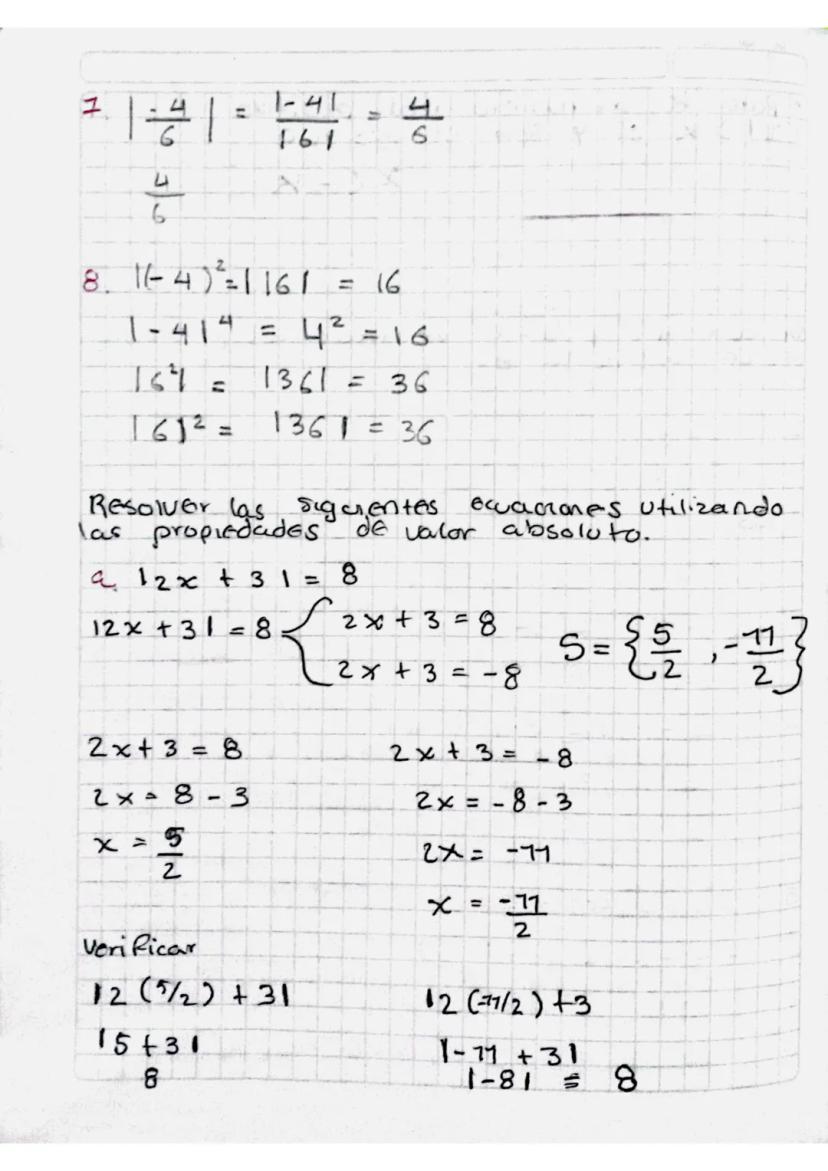 7 |-4/6| = |-4|/|6| = 4/6
4/6
8. |(-4)²=|16| = 16
|-4|⁴ = 4² = 16
|6²| = |36| = 36
|6|² = |36| = 36
Resolver las siguientes ecuaciones utilizando
las propiedades de valor absoluto.
a. |2x + 3| = 8
|2x + 3| = 8 { 2x + 3 = 8
2x + 3 = -8
S = {5/2, -11/2}
2x + 3 = 8
2x = 8 - 3
x = 5/2
2x + 3 = -8
2x = -8 - 3
2x = -11
x = -11/2
Verificar
|2 (5/2) + 3|
|5 + 3|
8
|2 (-11/2) + 3
|-11 + 3|
|-8| = 8